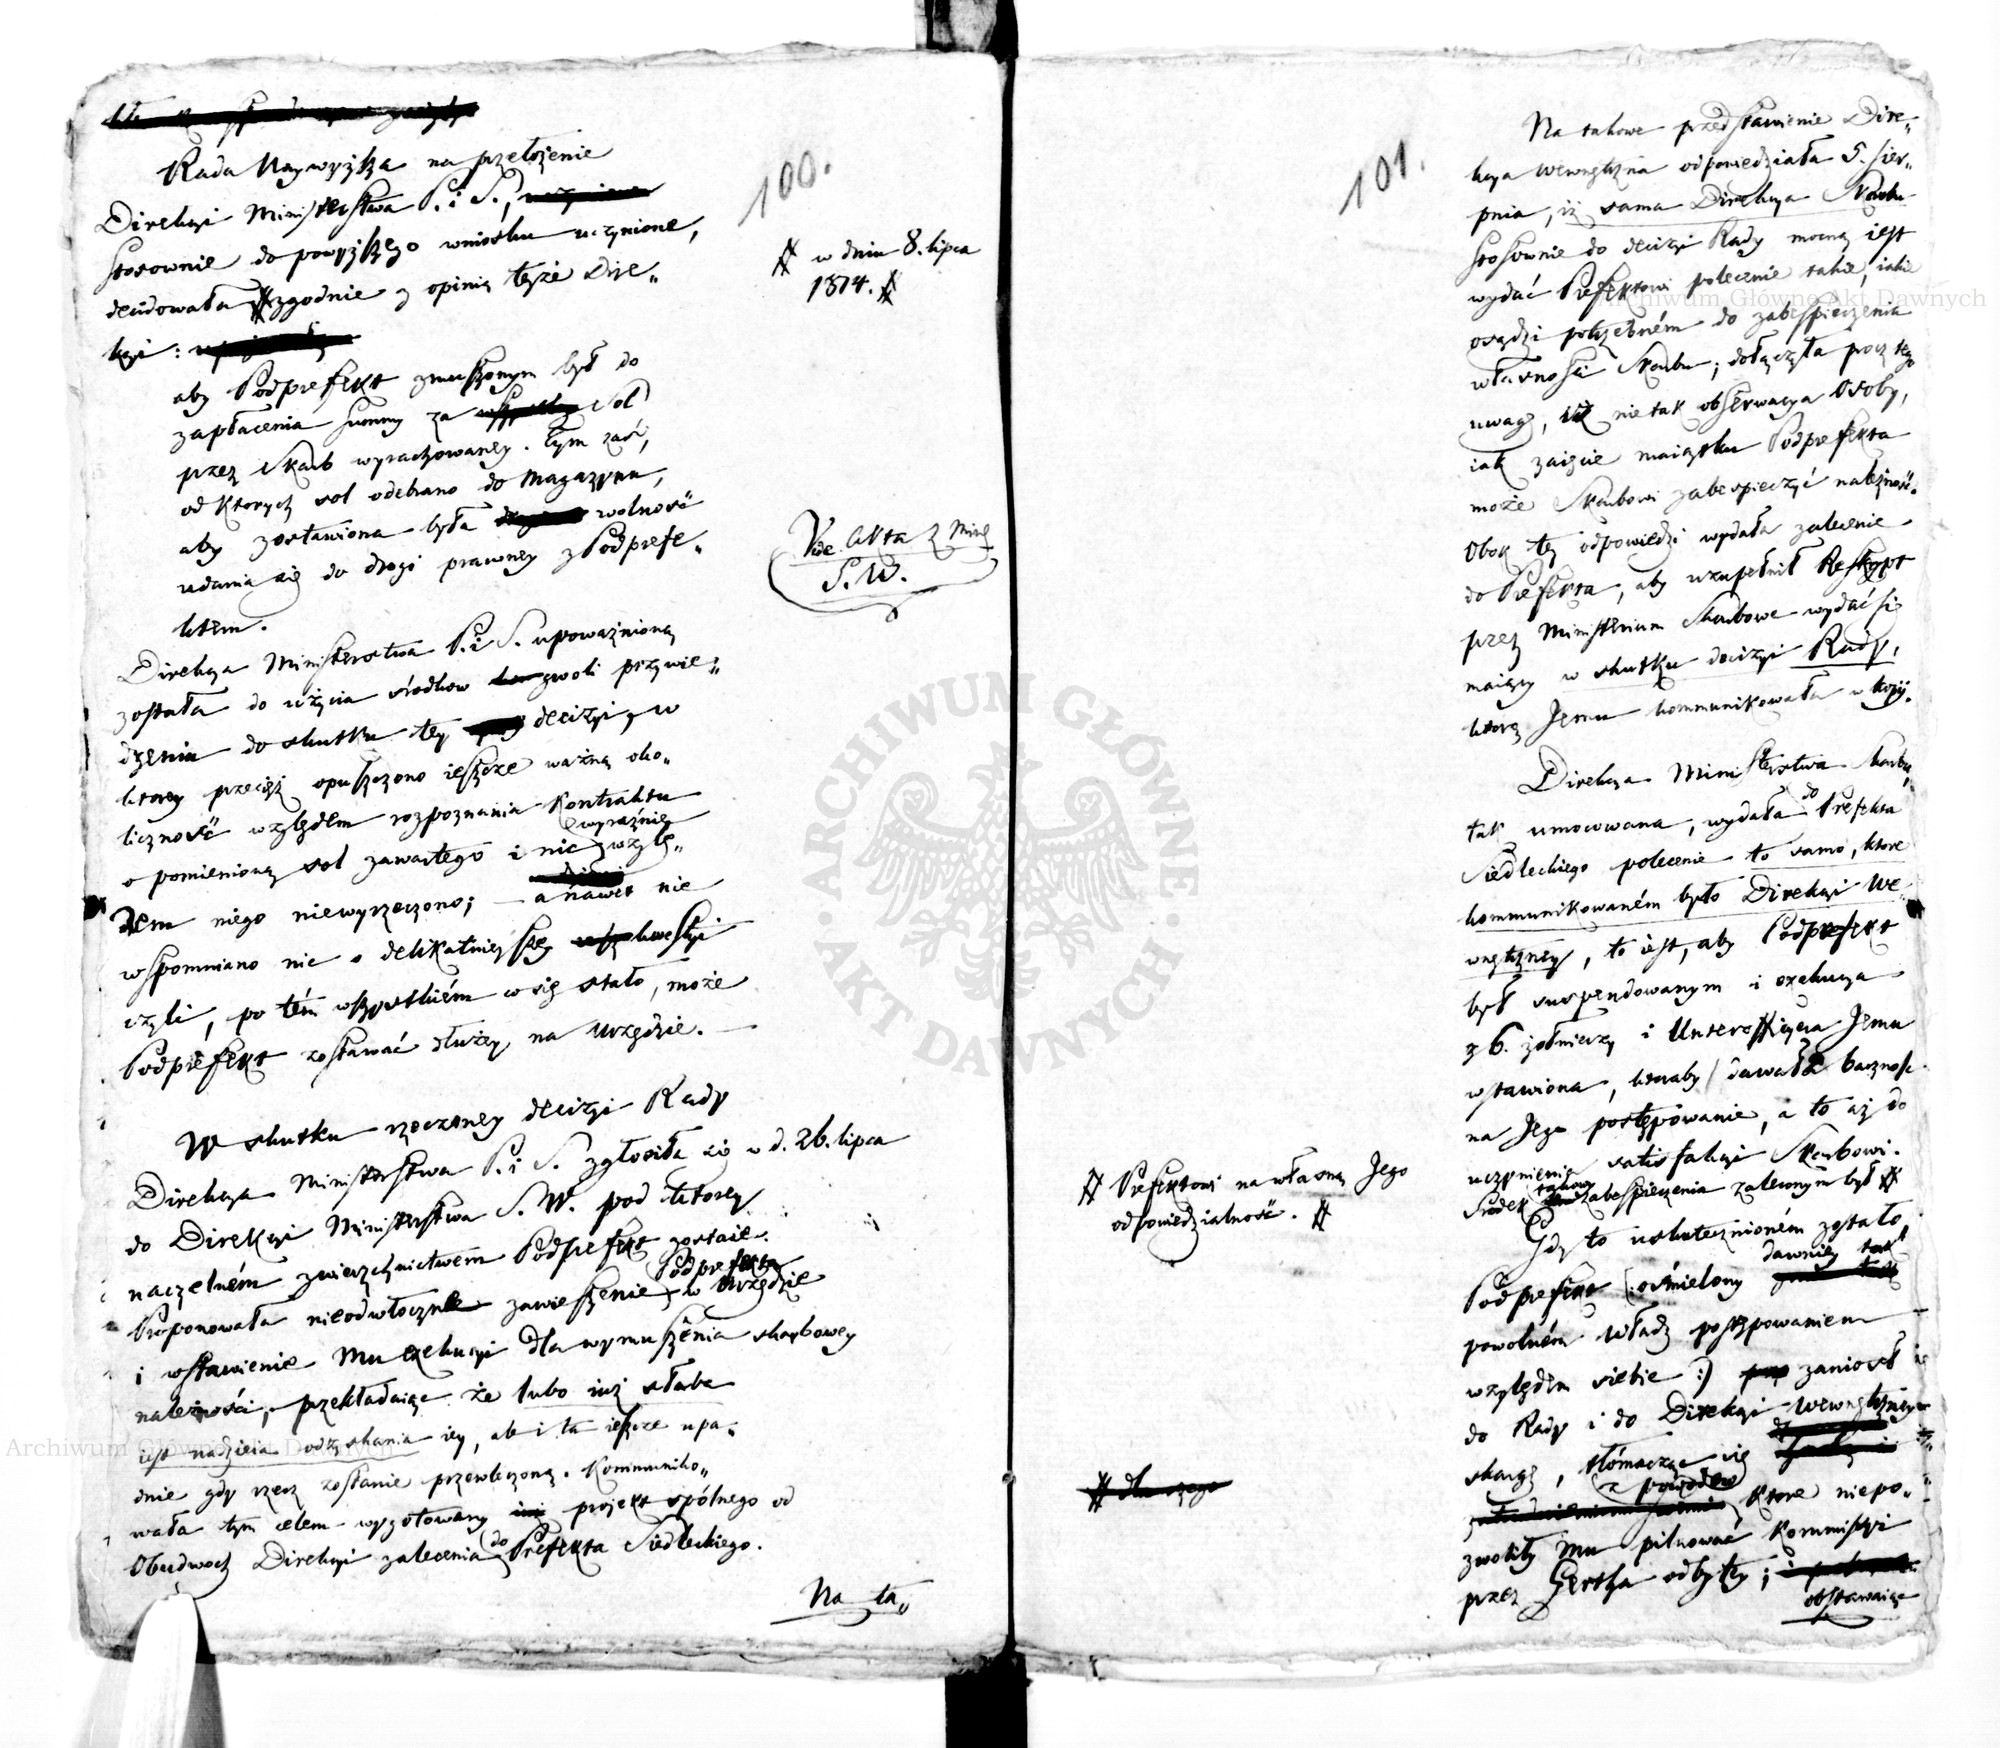 100.
Rada Naywyższa na przełożenie
Direkcyi Ministerstwa P. i S.,
stosownie do powyższego wniosku uczynione,
decidowała # zgodnie z opinią teyże Dire„
kcyi :
# w dniu 8. lipca
1814. #
aby Podprefekt zmuszonym był do
zapłacenia summy za sol
przez Skarb wyrachowaney. Tym zaś,
od ktorych sol odebrano do Magazynu,
aby zostawiona była wolność
udania się do drogi prawney z Podprefe„
ktem.
Vide Akta Min
S. W.
Direkcya Ministerstwa P. i S. upoważnioną
została do użycia środkow gwoli przywie„
dzenia do skutku tey decizyi, w
ktorey przecięż opuszczono ieszcze ważną oko„
liczność względem rozpoznania Kontraktu
o pomienioną sol zawartego i nic wyraźnie wzglę„
dem niego niewyrzeczono; — a nawet nie
wspomniano nic o delikatnieyszey kwestyi
czyli, po tém wszystkiém co się stało, może
Podprefekt zostawać dłużey na Urzędzie. —
W skutku rzeczoney decizyi Rady
Direkcya Ministerstwa P. i S. zgłosiła się w d. 26. lipca
do Direkcyi Ministerstwa S. W. pod ktorey
naczelném zwierzchnictwem Podprefekt zostaie.
Proponowała nieodwłoczne zawieszenie Podprefekta w Urzędzie
i wstawienie mu exekucyi dla wymuszenia skarbowey
należności, przekładaiąc że lubo iuż słaba
iest nadzieia odzyskania iey, ale i ta ieszcze upa„
dnie gdy rzecz zostanie przewleczoną. Kommuniko„
wała tym celem wygotowany projekt spólnego od
Obudwoch Direkcyi zalecenia do Prefekta Siedleckiego.
Na ta„
101.
Na takowe przedstawienie Dire„
kcya Wewnętrzna odpowiedziała 5. Sier„
pnia, iż sama Direkcya Skarbu
stosownie do decizyi Rady mocną iest
wydać Prefektowi polecenie takie, iakie
osądzi potrzebném do zabespieczenia
własności Skarbu; dołączyła procz tego
uwagę, iż nie tak obserwacya Osoby,
iak zaięcie maiątku Podprefekta
może Skarbowi zabespieczyć należność.
Obok tey odpowiedzi wydała zalecenie
do Prefekta, aby uzupełnił Reskrypt
przez Ministerium Skarbowe wydać się
maiący w skutku decizyi Rady,
ktorą Jemu kommunikowała w kopii.
Direkcya Ministerstwa Skarbu,
tak umocowana, wydała do Prefekta
Siedleckiego polecenie to samo, ktore
kommunikowaném było Direkcyi We„
wnętrzney, to iest, aby Podprefekt
był suspendowanym i exekucya
z 6. żołnierzy i Unteroffizyera Jemu
wstawiona, ktoraby dawała baczność
na Jego postępowanie, a to aż do
uczynienia satisfakcyi Skarbowi.
Srodek takowy zabespieczenia zaleconym był #
# Prefektowi na własną Jego
odpowiedzialność. #
Gdy to uskutecznioném zostało,
Podprefekt (: ośmielony dawniey tak
powolném Władz postępowaniem
względem siebie :) zaniosł
do Rady i do Direkcyi Wewnętrzney
skargę, tłómacząc się
z powodow, ktore niepo„
zwoliły mu pilnować Kommissyi
przez Gertha odbytey;
obstawaiąc